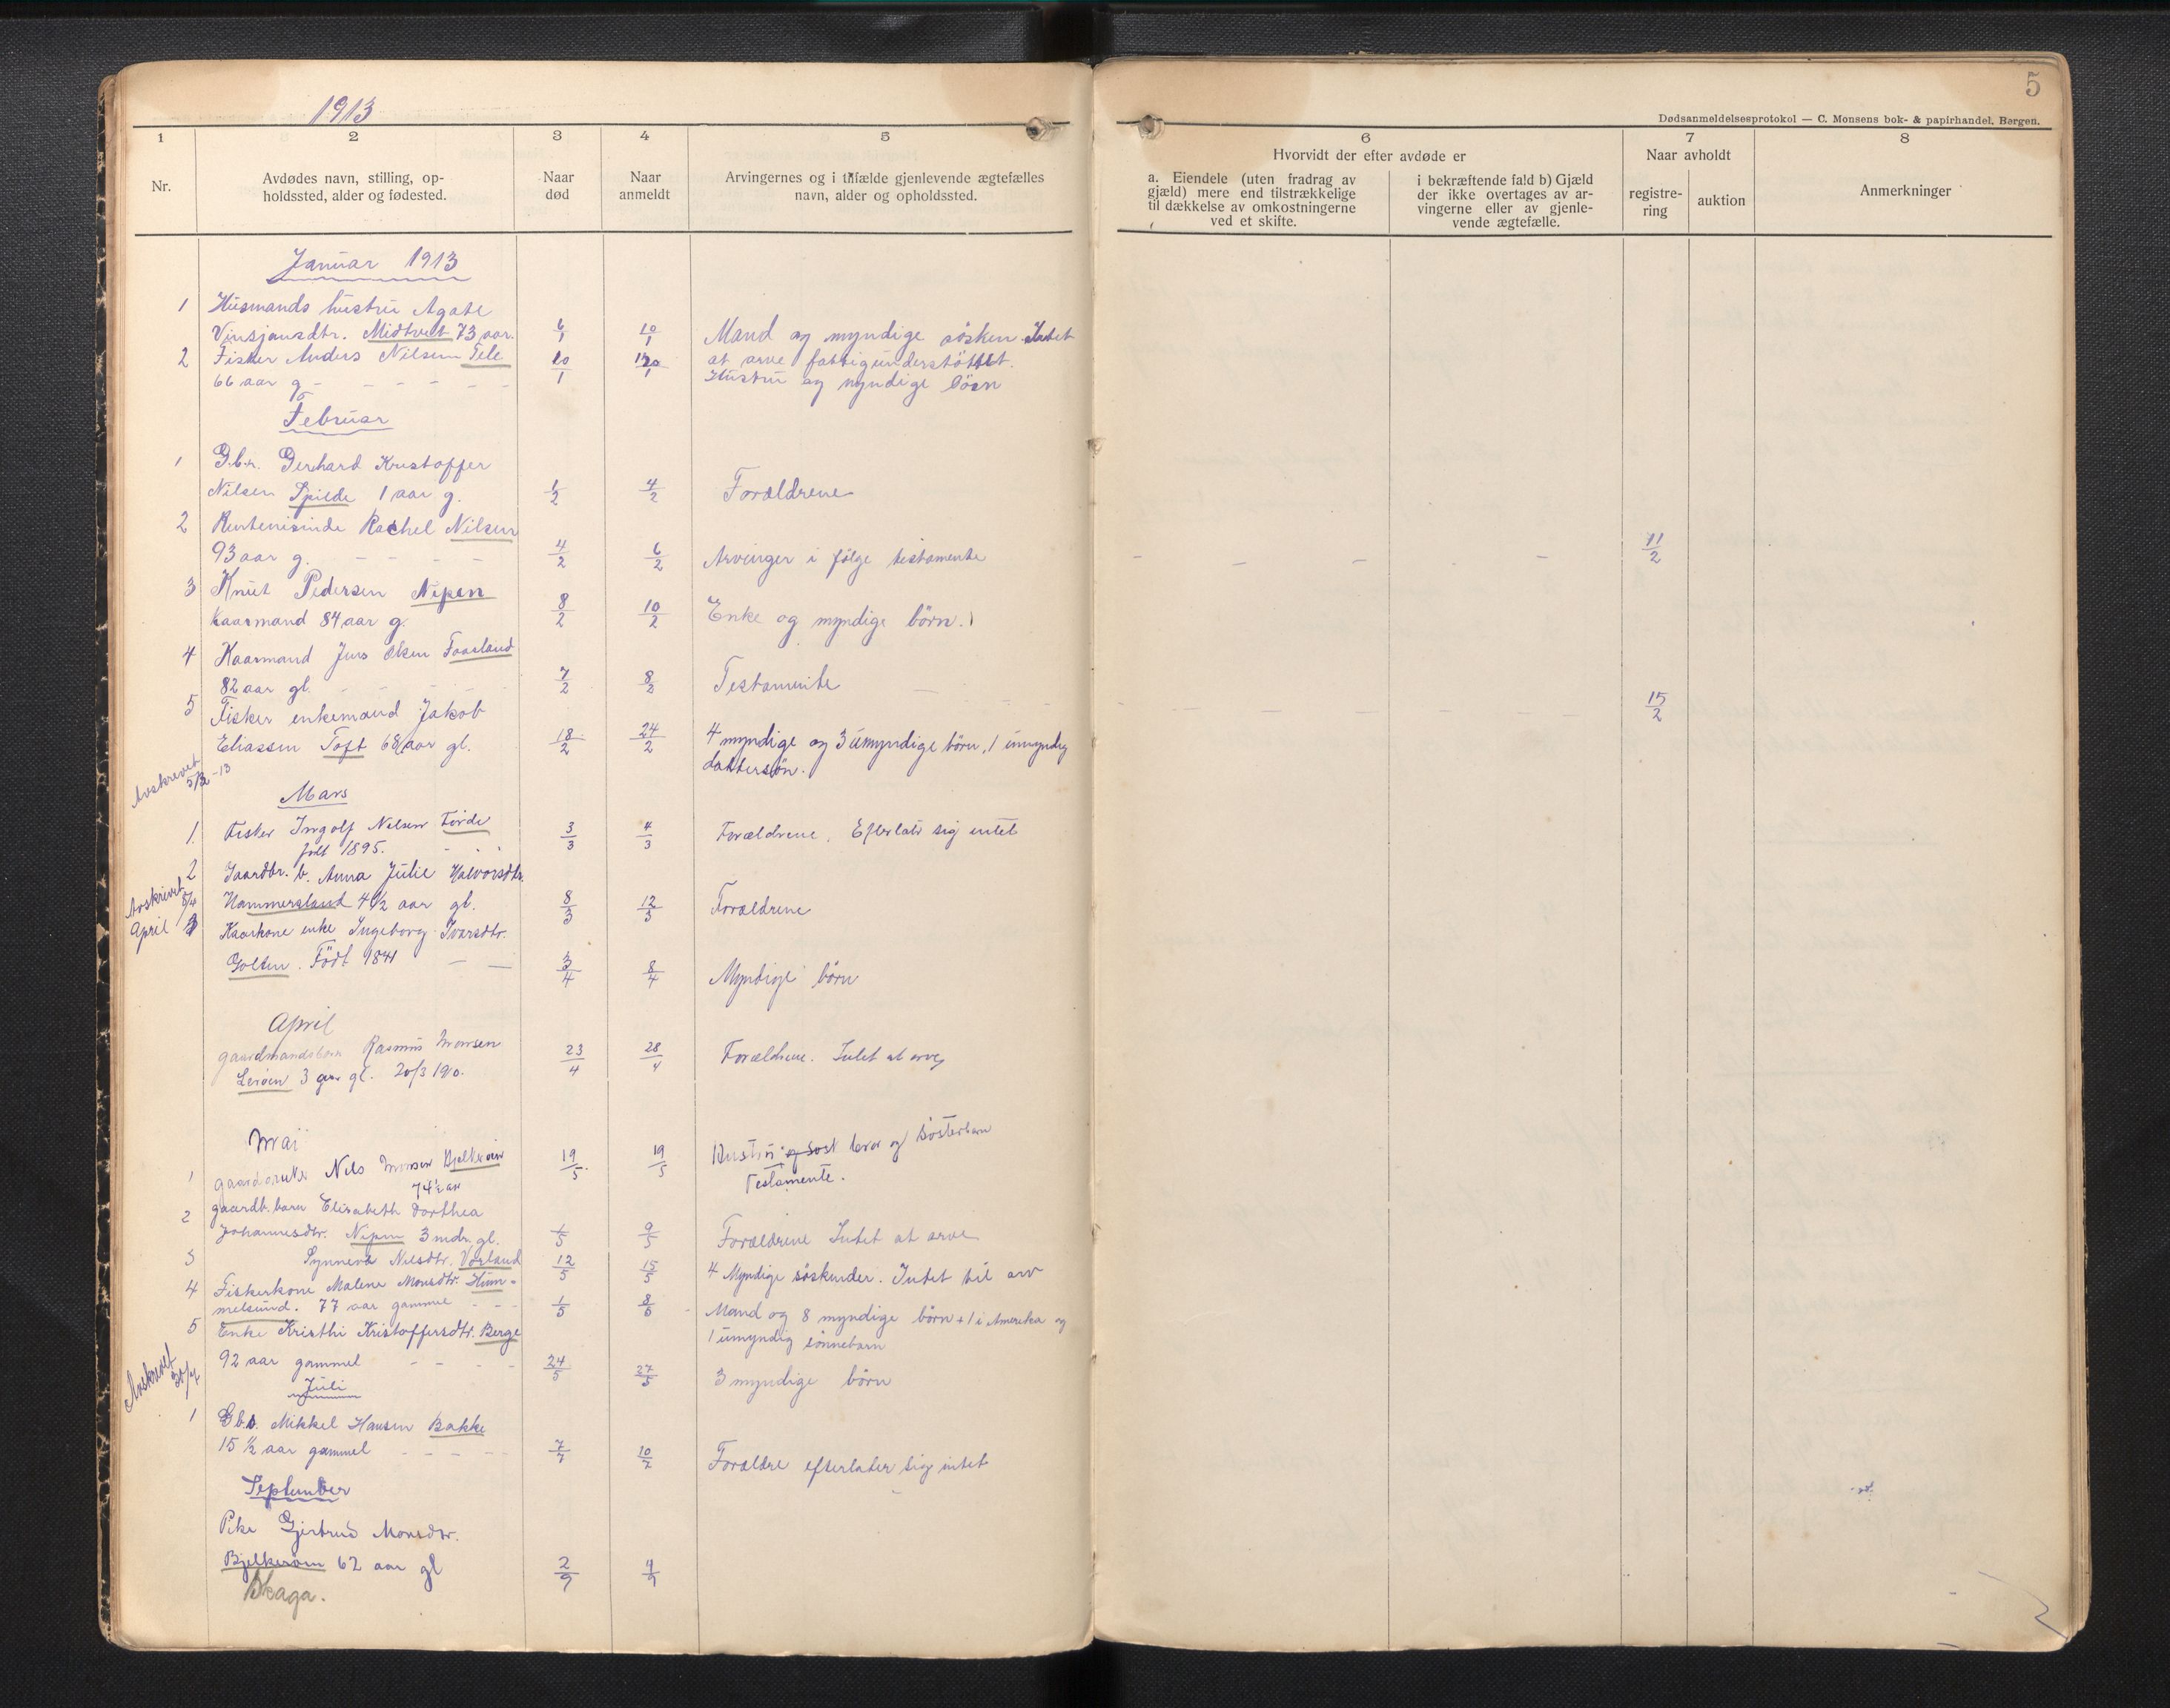 1913
5
Dødsanmeldelsesprotokol — C. Monsens bok- & papirhandel, Bergen.
1 2 3 4 5 6 7 8
Nr.
Avdødes navn, stilling, op-
holdssted, alder og fødested.
Naar
død
Naar
anmeldt
Arvingernes og i tilfælde gjenlevende ægtefælles
navn, alder og opholdssted.
Hvorvidt der efter avdøde er
a. Eiendele (uten fradrag av
gjæld) mere end tilstrækkelige
til dækkelse av omkostningerne
ved et skifte.
i bekræftende fald b) Gjæld
der ikke overtages av ar-
vingerne eller av gjenle-
vende ægtefælle.
Naar avholdt
registre-
ring
auktion
Anmerkninger
Januar 1913
1 Husmands hustru Agate
Vinsjansdtr. Midtvet 73 aar. 6/1 10/1 Mand og myndige søsken Intet
2 Fisker Anders Nilsen Tele 10/1 at arve fattigunderstøttet.
66 aar g - - - - - Hustru og myndige börn
Februar
1 G.b.n. Gerhard Kristoffer
Nilsen Spilde 1 aar g. 1/2 4/2 Forældrene
2 Rentenistinde Rachel Nilsen
93 aar g. - - - 4/2 6/2 Arvinger i følge testamente - - - - 11/2
3 Knut Pedersen Nipen
Kaarmand 84 aar g. 8/2 10/2 Enke og myndige börn.
4 Kaarmand Jens Olsen Faasland
82 aar gl. 7/2 8/2 Testamente - 15/2
5 Fisker enkemand Jakob
Eliassen Toft 68 aar gl. 18/2 24/2 4 myndige og 3 umyndige börn, 1 umyndig
dattersøn.
Avskrevet
5/3-13
Mars
1. Fisker Ingolf Nilsen Förde 3/3 4/3 Forældrene. Efterlate sig intet
født 1895.
2 Gaardbr. b. Anna Julie Halvorsdtr.
Hammersland 4 1/2 aar gl. 8/3 12/3 Forældrene
Avskrivet
5/4
April Kaarkone enke Ingeborg Ivarsdtr.
Golten. Född 1841 - - 3/4 8/4 Myndige börn
April
gaardmandsbarn Rasmus Monsen
Leröen 3 aar gl. 20/3 1910. 23/4 28/4 Forældrene. Intet at arve
Mai
1 gaardbruker Nils Monsen Bjelkeröen 19/5 19/5 Hustru og bror og søsterbarn
74 1/2 aar Testamente.
2 gaardb. barn Elisabeth Dorthea
Johannesdtr. Nipen 3 mdr. gl. 1/5 9/5 Forældrene Intet at arve
3 Synneva Nilsdtr. Vorland 12/5 15/5 4 Myndige söskender. Intet til arv
4 Fiskerkone Malene Monsdtr. Hum-
melsund. 77 aar gammel - - - 1/5 8/5 Mand og 8 myndige börn + 1 i Amerika og
1 umyndig sönnebarn
5 Enke Kristhi Kristoffersdtr. Berge
92 aar gammel - - - - 24/5 27/5 3 myndige börn
Avskrevet
Juli
1 G.b.s. Mikkel Hansen Bakke
15 1/2 aar gammel - - - - 7/7 10/7 Forældre efterlater sig intet
September
Pike Gjertrud Monsdtr.
Bjelkeröen 62 aar gl 2/9 4/9
Skaga.